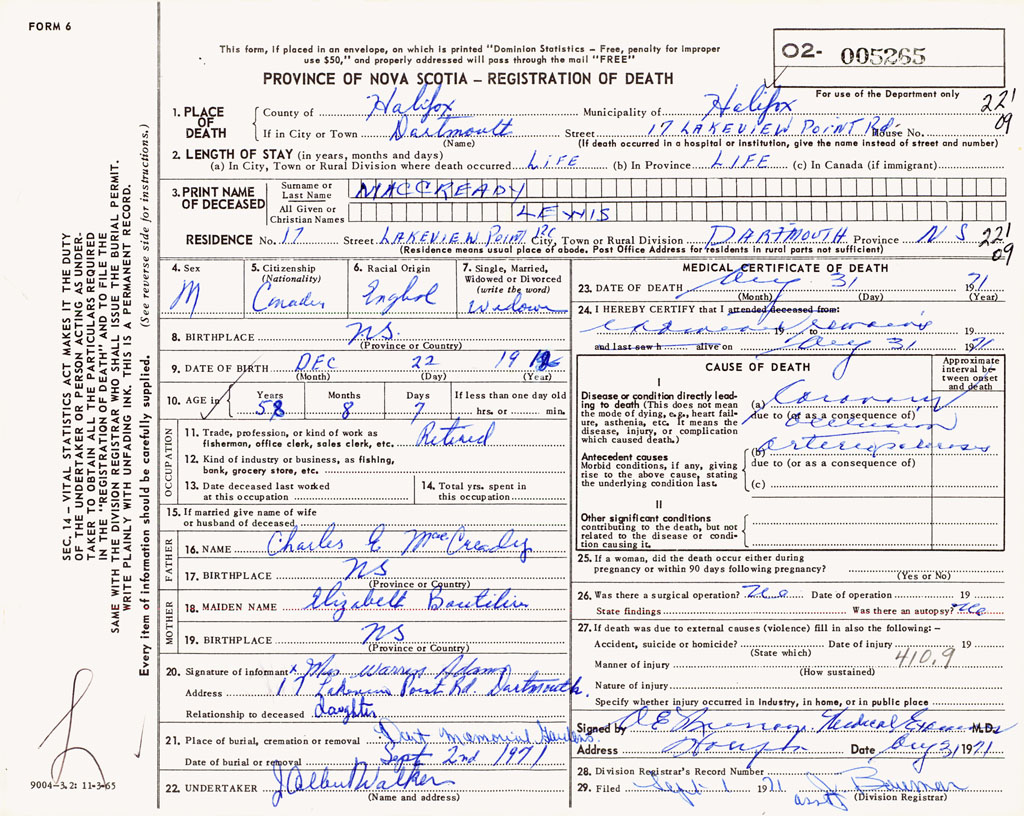 FORM 6
This form, if placed in an envelope, on which is printed "Dominion Statistics – Free, penalty for improper
use $50," and properly addressed will pass through the mail "FREE"
PROVINCE OF NOVA SCOTIA – REGISTRATION OF DEATH
02- 005265
For use of the Department only
221
09
1. PLACE OF DEATH
County of Halifax Municipality of Halifax
If in City or Town Dartmouth Street 17 LAKEVIEW POINT Rd. House No.
(Name) (If death occurred in a hospital or institution, give the name instead of street and number)
2. LENGTH OF STAY (in years, months and days)
(a) In City, Town or Rural Division where death occurred LIFE (b) In Province LIFE (c) In Canada (if immigrant)
3. PRINT NAME OF DECEASED
Surname or Last Name MACCREADY
All Given or Christian Names LEWIS
RESIDENCE No. 17 Street LAKEVIEW POINT City, Town or Rural Division DARTMOUTH Province NS 221
09
(Residence means usual place of abode. Post Office Address for residents in rural parts not sufficient)
4. Sex M
5. Citizenship (Nationality)
6. Racial Origin
7. Single, Married, Widowed or Divorced (write the word)
8. BIRTHPLACE NS.
(Province or Country)
9. DATE OF BIRTH DEC 22 19
(Month) (Day) (Year)
10. AGE in Years 58 Months 8 Days 7 If less than one day old hrs. or min.
OCCUPATION
11. Trade, profession, or kind of work as fisherman, office clerk, sales clerk, etc. Retired
12. Kind of industry or business, as fishing, bank, grocery store, etc.
13. Date deceased last worked at this occupation
14. Total yrs. spent in this occupation
15. If married give name of wife or husband of deceased
FATHER
16. NAME Charles E MacCready
17. BIRTHPLACE NS
(Province or Country)
MOTHER
18. MAIDEN NAME Elizabeth Boutilier
19. BIRTHPLACE NS
(Province or Country)
20. Signature of informant x Mrs Warren Adams
Address 17 Lakeview Point Rd. Dartmouth
Relationship to deceased Daughter
21. Place of burial, cremation or removal Dart Memorial Gardens
Date of burial or removal Sept 2nd 1971
22. UNDERTAKER J Albert Walker
(Name and address)
MEDICAL CERTIFICATE OF DEATH
23. DATE OF DEATH Aug 31 1971
(Month) (Day) (Year)
24. I HEREBY CERTIFY that I attended deceased from:
19 19
and last saw h alive on Aug 31 1971
CAUSE OF DEATH
Approximate interval between onset and death
I
Disease or condition directly leading to death (This does not mean the mode of dying, e.g., heart failure, asthenia, etc. It means the disease, injury, or complication which caused death.)
(a) Coronary
due to (or as a consequence of)
Occlusion
Antecedent causes
Morbid conditions, if any, giving rise to the above cause, stating the underlying condition last.
(b) arteriosclerosis
due to (or as a consequence of)
(c)
II
Other significant conditions
contributing to the death, but not related to the disease or condition causing it.
25. If a woman, did the death occur either during pregnancy or within 90 days following pregnancy?
(Yes or No)
26. Was there a surgical operation? No Date of operation 19
State findings Was there an autopsy? No
27. If death was due to external causes (violence) fill in also the following: –
Accident, suicide or homicide? Date of injury 19
(State which)
410.9
Manner of injury
(How sustained)
Nature of injury
Specify whether injury occurred in Industry, in home, or in public place
Signed by Medical Examiner M.D.
Address Date Aug 31 1971
28. Division Registrar's Record Number
29. Filed Sept 1 1971
asst
(Division Registrar)
SEC. 14 – VITAL STATISTICS ACT MAKES IT THE DUTY
OF THE UNDERTAKER OR PERSON ACTING AS UNDER-
TAKER TO OBTAIN ALL THE PARTICULARS REQUIRED
IN THE "REGISTRATION OF DEATH" AND TO FILE THE
SAME WITH THE DIVISION REGISTRAR WHO SHALL ISSUE THE BURIAL PERMIT.
WRITE PLAINLY WITH UNFADING INK. THIS IS A PERMANENT RECORD.
Every item of information should be carefully supplied. (See reverse side for instructions.)
9004-3.2: 11-3-65